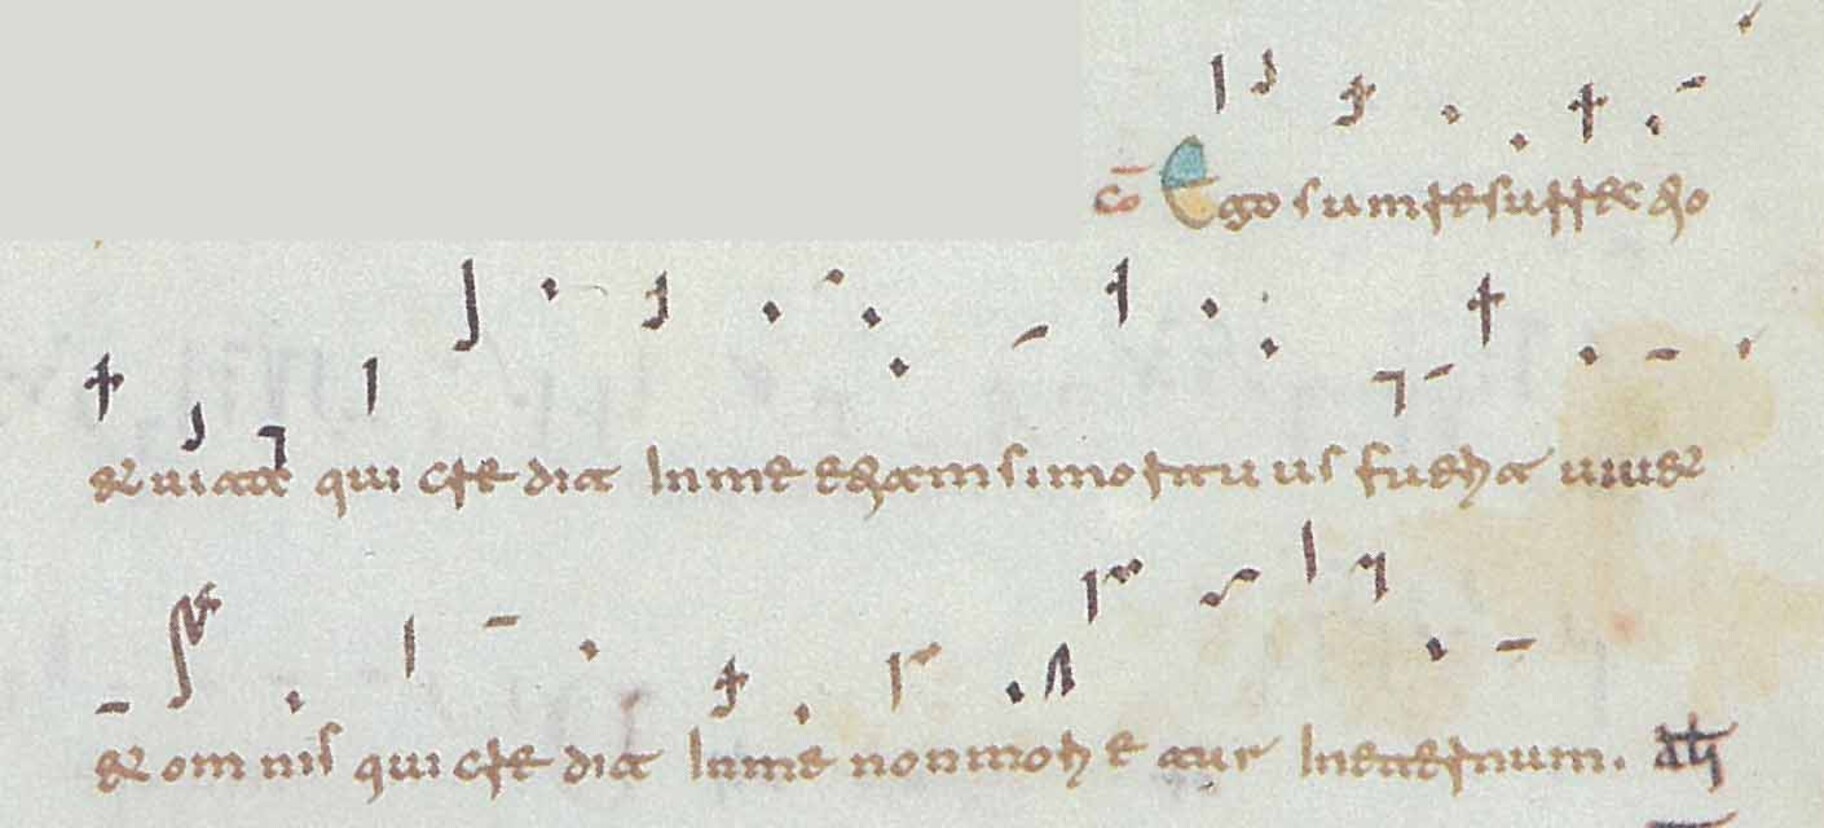 cō Ego sum resurrectio
et uita qui credit In me etiam si mortuus fuerit uiuet
et omnis qui credit In me non morietur In eternum. all